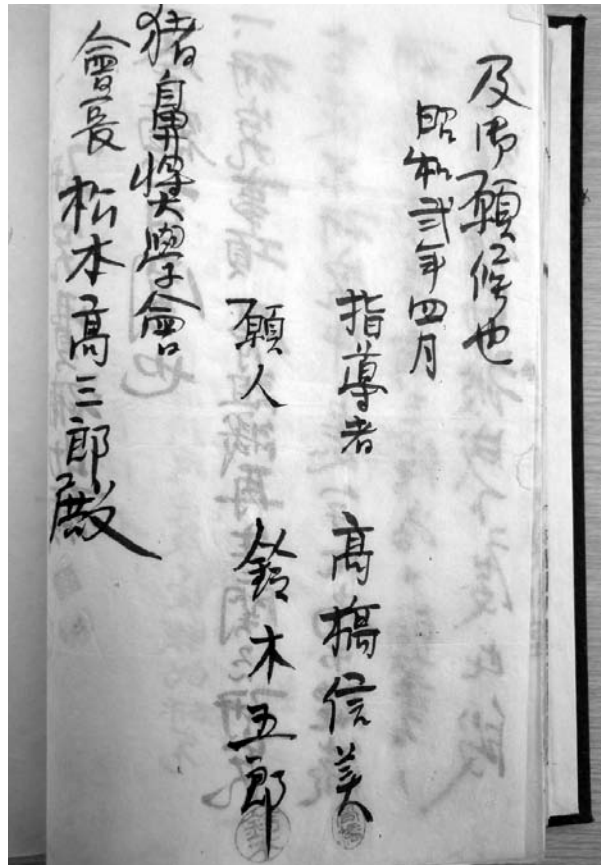 及御願候也
昭和弐年四月
指導者 高橋信美
願人 鈴木五郎
猪鼻奨學會
會長 松本髙三郎殿